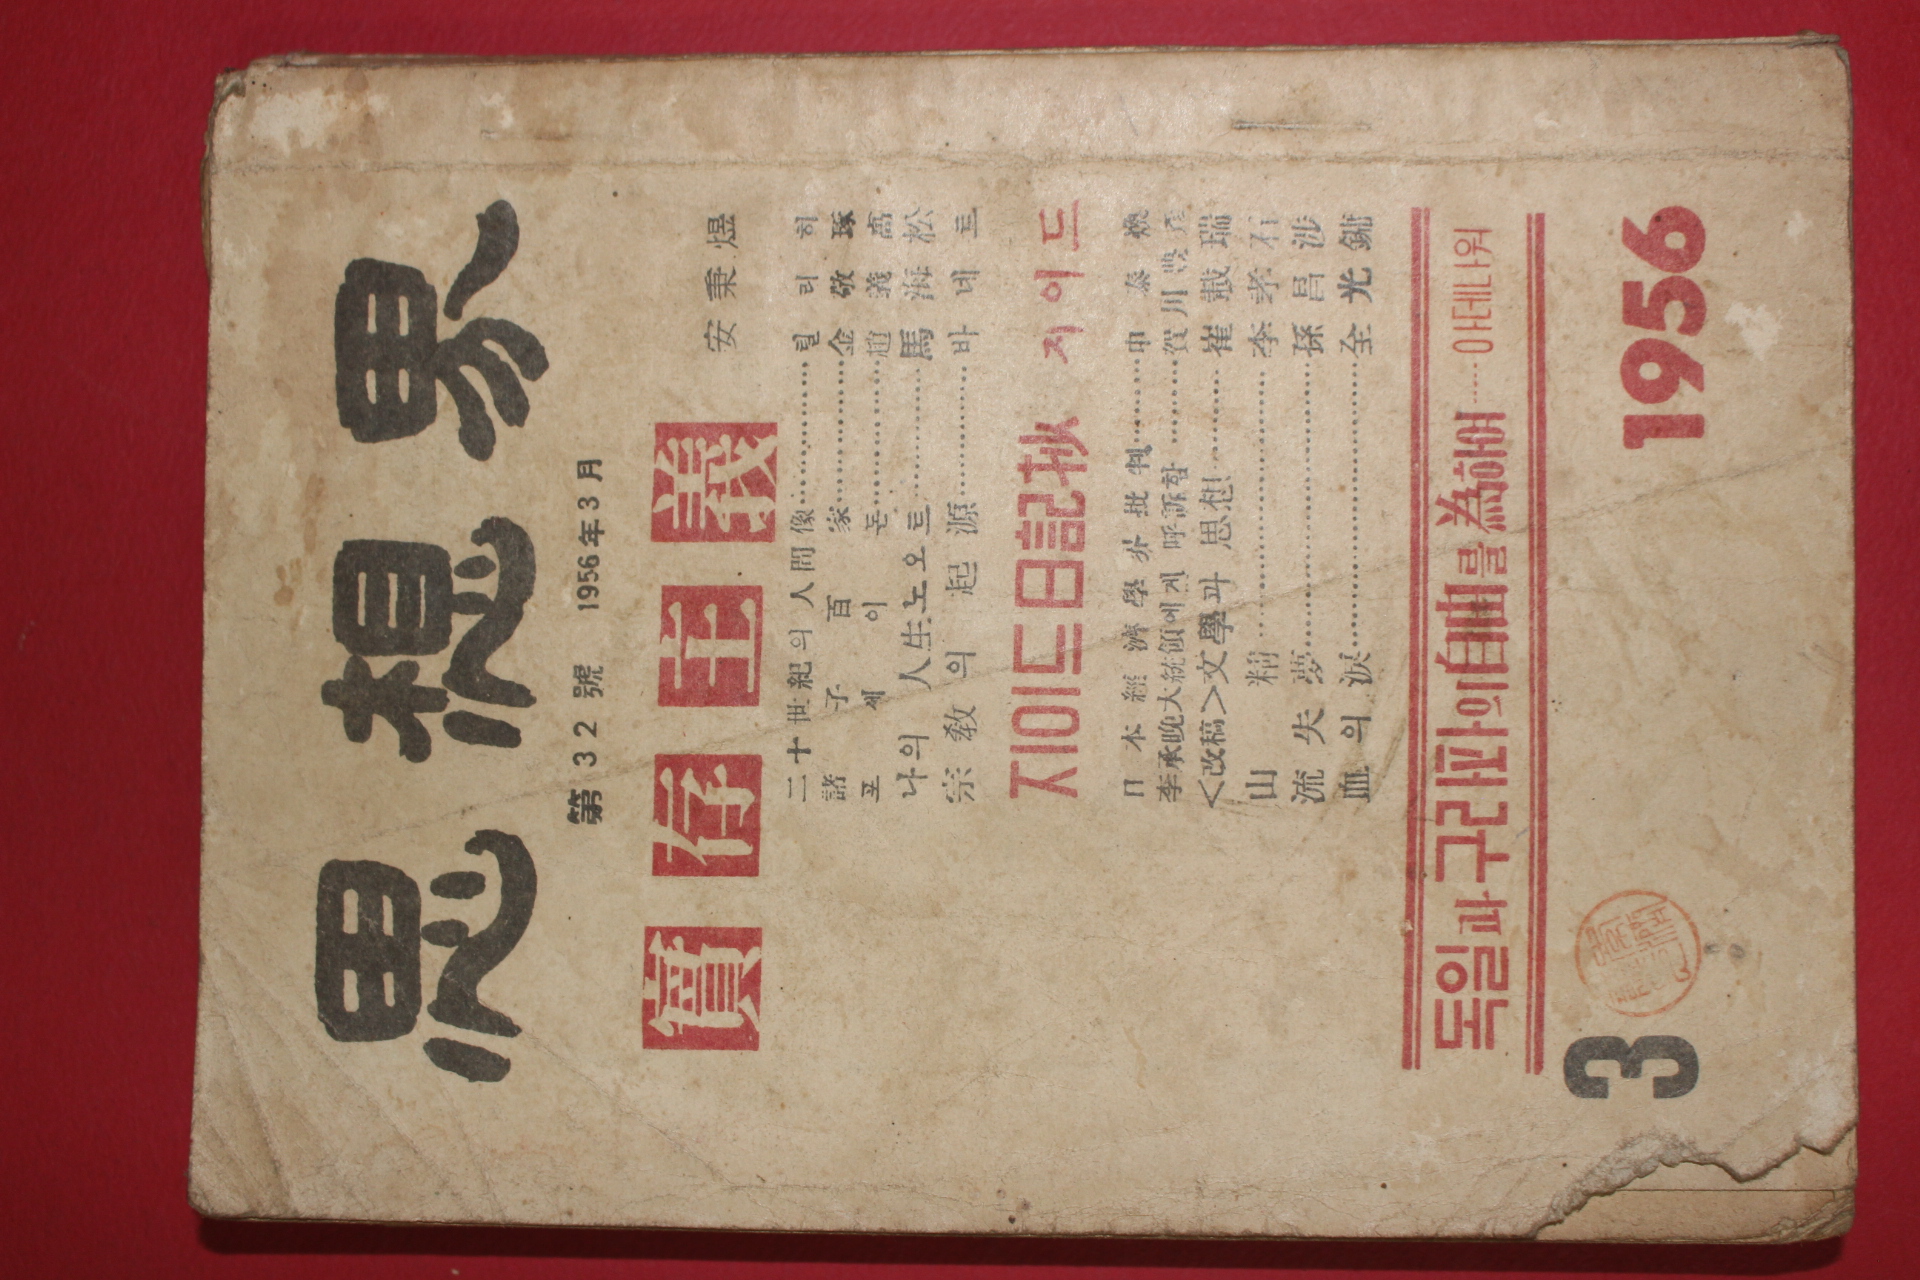 思想界
第32號 1956年3月
實存主義 安秉煜
二十世紀의 人間像 틸리히
諸子百家 金敬琢
포 세 이 돈 趙義卨
나의 人生노오트 馬海松
宗敎의 起源 바네트
지이드日記抄 지이드
日本經濟學界批判 申泰煥
李承晩大統領에게 呼訴함 賀川豊彦
<改稿>文學과 思想 崔載瑞
山精 李孝石
流失夢 孫昌涉
血의 淚 全光鏞
독일과 구라파의 自由를 為하여 아데나워
3
1956